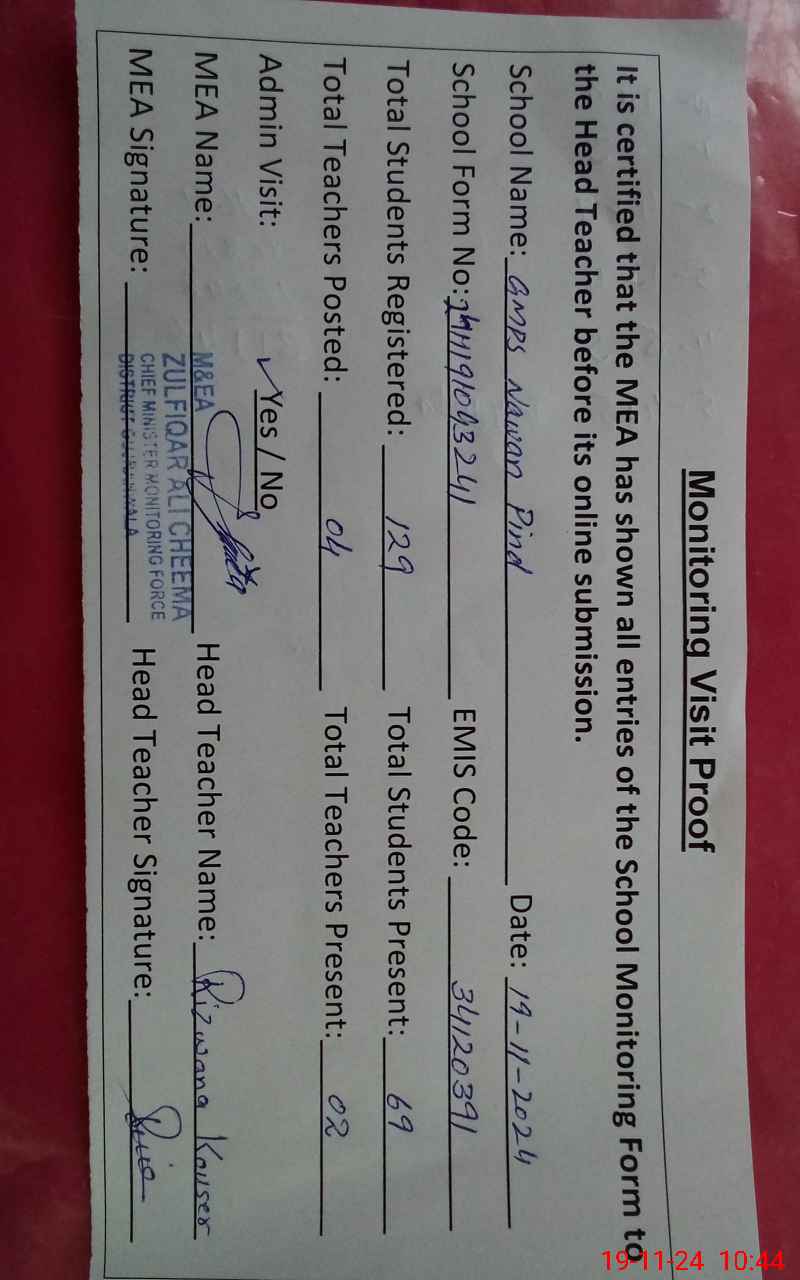 Monitoring Visit Proof
It is certified that the MEA has shown all entries of the School Monitoring Form to
the Head Teacher before its online submission.
School Name: GMPS Nawan Pind Date: 19-11-2024
School Form No: EMIS Code: 34120391
Total Students Registered: 129 Total Students Present: 69
Total Teachers Posted: 04 Total Teachers Present: 02
Admin Visit: ✓Yes / No
MEA Name: M&EA Head Teacher Name: Rizwana Kouser
ZULFIQAR ALI CHEEMA
MEA Signature: CHIEF MINISTER MONITORING FORCE Head Teacher Signature:
DISTRICT GUJRANWALA
19-11-24 10:44